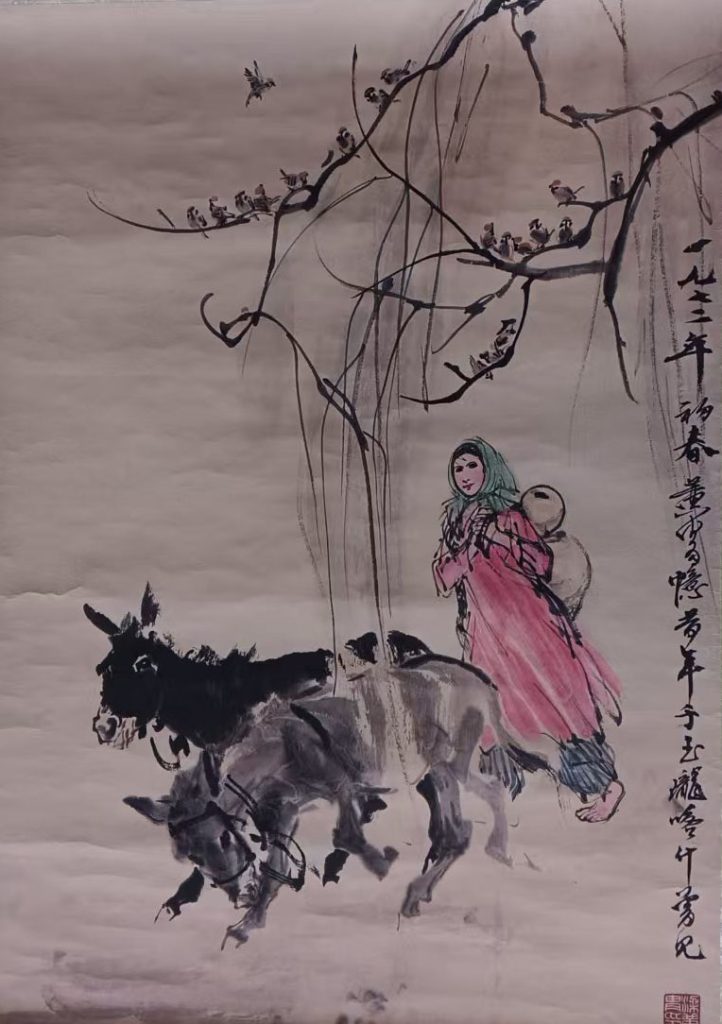 一九七二年初春黄胄憶昔年于玉瓏喀什见